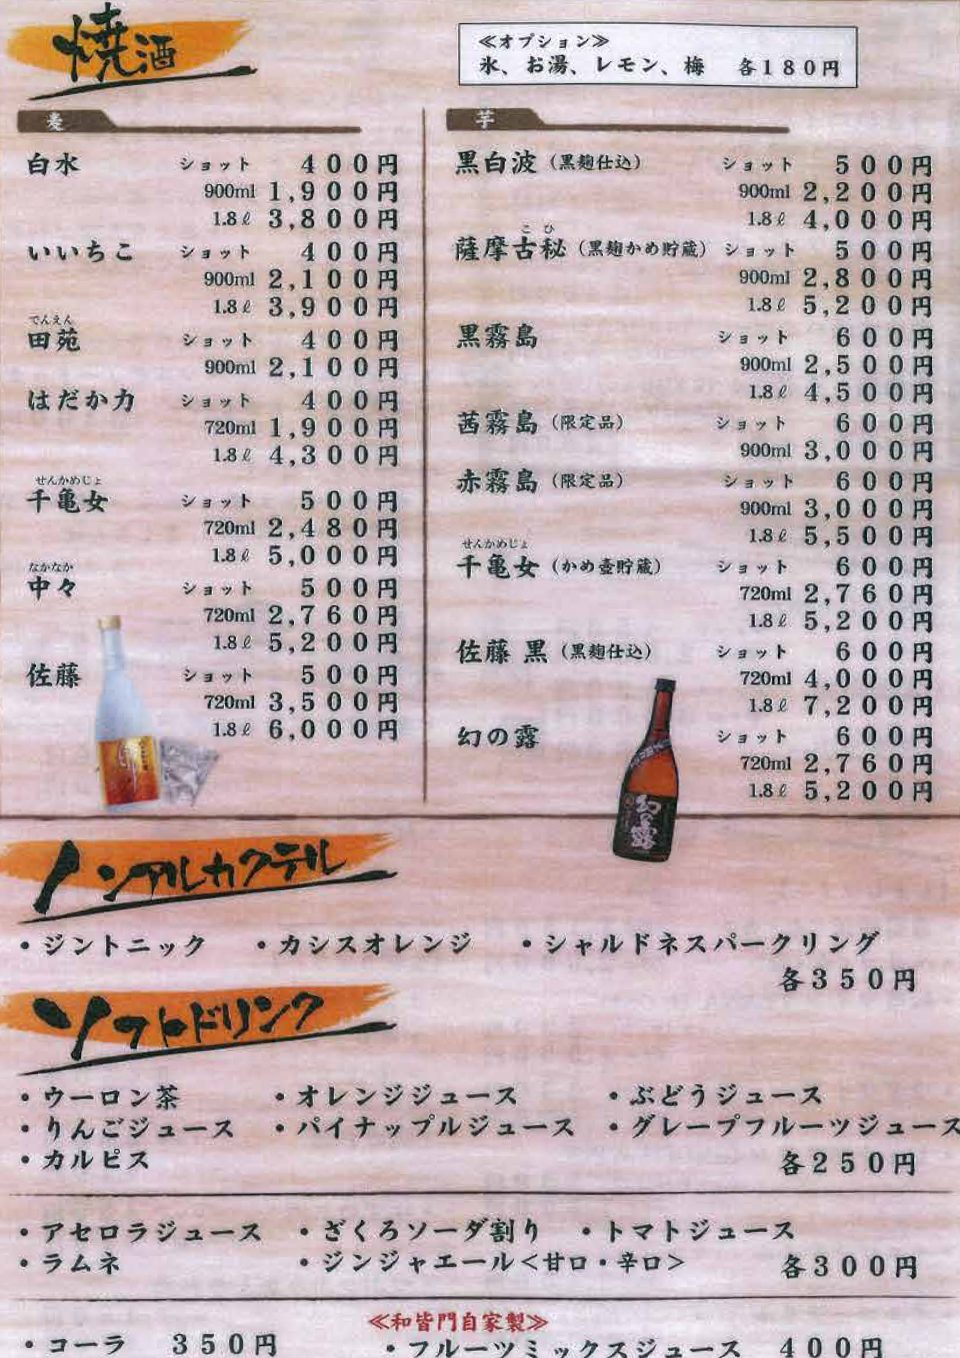 焼酒
≪オプション≫
氷、お湯、レモン、梅 各180円
麦
白水 ショット 400円
900ml 1,900円
1.8ℓ 3,800円
いいちこ ショット 400円
900ml 2,100円
1.8ℓ 3,900円
でんえん
田苑 ショット 400円
900ml 2,100円
はだか力 ショット 400円
720ml 1,900円
1.8ℓ 4,300円
せんかめじょ
千亀女 ショット 500円
720ml 2,480円
1.8ℓ 5,000円
なかなか
中々 ショット 500円
720ml 2,760円
1.8ℓ 5,200円
佐藤 ショット 500円
720ml 3,500円
1.8ℓ 6,000円
芋
黒白波（黒麹仕込） ショット 500円
900ml 2,200円
1.8ℓ 4,000円
こひ
薩摩古秘（黒麹かめ貯蔵） ショット 500円
900ml 2,800円
1.8ℓ 5,200円
黒霧島 ショット 600円
900ml 2,500円
1.8ℓ 4,500円
茜霧島（限定品） ショット 600円
900ml 3,000円
赤霧島（限定品） ショット 600円
900ml 3,000円
1.8ℓ 5,500円
せんかめじょ
千亀女（かめ壺貯蔵） ショット 600円
720ml 2,760円
1.8ℓ 5,200円
佐藤 黒（黒麹仕込） ショット 600円
720ml 4,000円
1.8ℓ 7,200円
幻の露 ショット 600円
720ml 2,760円
1.8ℓ 5,200円
幻の露
ノンアルカクテル
・ジントニック ・カシスオレンジ ・シャルドネスパークリング
各350円
ソフトドリンク
・ウーロン茶 ・オレンジジュース ・ぶどうジュース
・りんごジュース ・パイナップルジュース ・グレープフルーツジュース
・カルピス 各250円
・アセロラジュース ・ざくろソーダ割り ・トマトジュース
・ラムネ ・ジンジャエール＜甘口・辛口＞ 各300円
≪和皆門自家製≫
・コーラ 350円 ・フルーツミックスジュース 400円